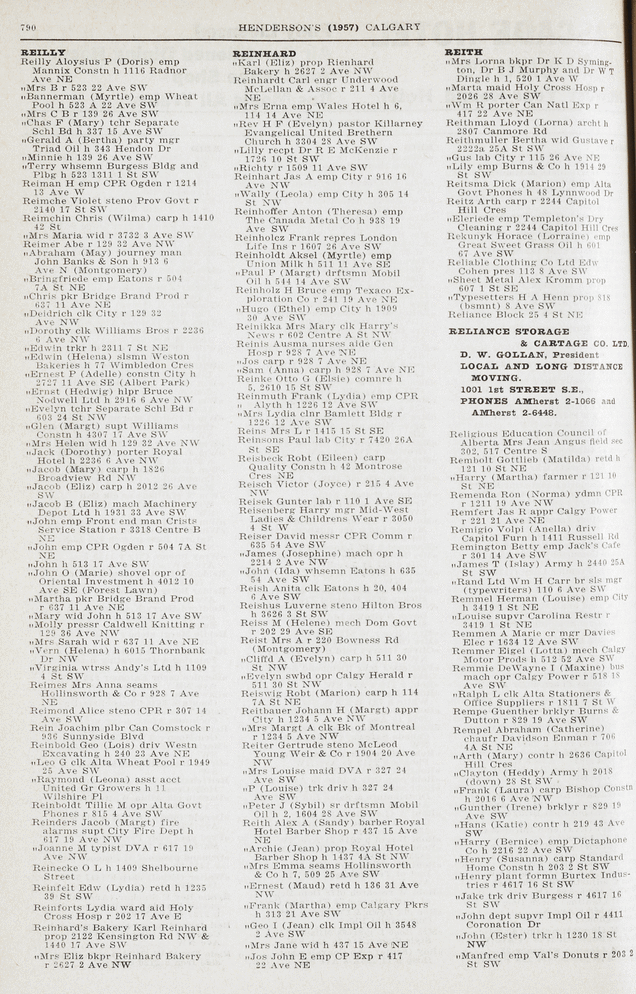 790
HENDERSON'S (1957) CALGARY
REILLY
Reilly Aloysius P (Doris) emp
Mannix Constn h 1116 Radnor
Ave NE
"Mrs B r 523 22 Ave SW
"Bannerman (Myrtle) emp Wheat
Pool h 523 A 22 Ave SW
"Mrs C B r 139 26 Ave SW
"Chas F (Mary) tchr Separate
Schl Bd h 337 15 Ave SW
"Gerald A (Bertha) party mgr
Triad Oil h 343 Hendon Dr
"Minnie h 139 26 Ave SW
"Terry whsemn Burgess Bldg and
Plbg h 523 1311 1 St SW
Reiman H emp CPR Ogden r 1214
13 Ave W
Reimche Violet steno Prov Govt r
2140 17 St SW
Reimchin Chris (Wilma) carp h 1410
42 St
"Mrs Maria wid r 3732 3 Ave SW
Reimer Abe r 129 32 Ave NW
"Abraham (May) journey man
John Banks & Son h 913 6
Ave N (Montgomery)
"Bringfriede emp Eatons r 504
7A St NE
"Chris pkr Bridge Brand Prod r
637 11 Ave NE
"Deidrich clk City r 129 32
Ave NW
"Dorothy clk Williams Bros r 2236
6 Ave NW
"Edwin trkr h 2311 7 St NE
"Edwin (Helena) slsmn Weston
Bakeries h 77 Wimbledon Cres
"Ernest P (Adelle) constn City h
2727 11 Ave SE (Albert Park)
"Ernst (Hedwig) hlpr Bruce
Nodwell Ltd h 2916 6 Ave NW
"Evelyn tchr Separate Schl Bd r
603 24 St NW
"Glen (Margt) supt Williams
Constn h 4307 17 Ave SW
"Mrs Helen wid h 129 32 Ave NW
"Jack (Dorothy) porter Royal
Hotel h 2236 6 Ave NW
"Jacob (Mary) carp h 1826
Broadview Rd NW
"Jacob (Eliz) carp h 2012 26 Ave
SW
"Jacob B (Eliz) mach Machinery
Depot Ltd h 1931 33 Ave SW
"John emp Front end man Crists
Service Station r 3318 Centre B
NE
"John emp CPR Ogden r 504 7A St
NE
"John h 513 17 Ave SW
"John O (Marie) shovel opr of
Oriental Investment h 4012 10
Ave SE (Forest Lawn)
"Martha pkr Bridge Brand Prod
r 637 11 Ave NE
"Mary wid John h 513 17 Ave SW
"Molly presser Caldwell Knitting r
129 36 Ave NW
"Mrs Sarah wid r 637 11 Ave NE
"Vern (Helen) h 6015 Thornbank
Dr NW
"Virginia wtrss Andy's Ltd h 1109
4 St SW
Reimes Mrs Anna seams
Hollinsworth & Co r 928 7 Ave
NE
Reimond Alice steno CPR r 307 14
Ave SW
Rein Joachim plbr Can Comstock r
936 Sunnyside Blvd
Reinbold Geo (Lois) driv Westn
Excavating h 240 23 Ave NE
"Leo G clk Alta Wheat Pool r 1949
25 Ave SW
"Raymond (Leona) asst acct
United Gr Growers h 11
Wilshire Pl
Reinboldt Tillie M opr Alta Govt
Phones r 815 4 Ave SW
Reinders Jacob (Margt) fire
alarms supt City Fire Dept h
617 19 Ave NW
"Joanne M typist DVA r 617 19
Ave NW
Reinecke O L h 1409 Shelbourne
Street
Reinfelt Edw (Lydia) retd h 1235
39 St SW
Reinforts Lydia ward aid Holy
Cross Hosp r 202 17 Ave E
Reinhard's Bakery Karl Reinhard
prop 2122 Kensington Rd NW &
1440 17 Ave SW
"Mrs Eliz bkpr Reinhard Bakery
r 2627 2 Ave NW
REINHARD
"Karl (Eliz) prop Rienhard
Bakery h 2627 2 Ave NW
Reinhardt Carl engr Underwood
McLellan & Assoc r 211 4 Ave
NE
"Mrs Erna emp Wales Hotel h 6,
114 14 Ave NE
"Rev H F (Evelyn) pastor Killarney
Evangelical United Brethern
Church h 3304 28 Ave SW
"Lilly recpt Dr R E McKenzie r
1726 10 St SW
"Richty r 1509 11 Ave SW
Reinhart Jas A emp City r 916 16
Ave NW
"Wally (Leola) emp City h 305 14
St NW
Reinhoffer Anton (Theresa) emp
The Canada Metal Co h 938 19
Ave SW
Reinholz Frank repres London
Life Ins r 1607 26 Ave SW
Reinholdt Aksel (Myrtle) emp
Union Milk h 511 11 Ave SE
"Paul P (Margt) drftsmn Mobil
Oil h 544 14 Ave SW
Reinholz H Bruce emp Texaco Ex-
ploration Co r 241 19 Ave NE
"Hugo (Ethel) emp City h 1909
30 Ave SW
Reinikka Mrs Mary clk Harry's
News r 602 Centre A St NW
Reinis Ausma nurses aide Gen
Hosp r 928 7 Ave NE
"Jos carp r 928 7 Ave NE
"Sam (Anna) carp h 928 7 Ave NE
Reinke Otto G (Elsie) comnre h
5, 2610 15 St SW
Reinmuth Frank (Lydia) emp CPR
Alyth h 1226 12 Ave SW
"Mrs Lydia clnr Bamlett Bldg r
1226 12 Ave SW
Reins Mrs L r 1415 15 St SE
Reinsons Paul lab City r 7420 26A
St SE
Reisbeck Robt (Eileen) carp
Quality Constn h 42 Montrose
Cres NE
Reisch Victor (Joyce) r 215 4 Ave
NW
Reisek Gunter lab r 110 1 Ave SE
Reisenberg Harry mgr Mid-West
Ladies & Childrens Wear r 3050
4 St SW
Reiser David messr CPR Comm r
635 54 Ave SW
"James (Josephine) mach opr h
2214 2 Ave NW
"John (Ida) whsemn Eatons h 635
54 Ave SW
Reish Anita clk Eatons h 20, 404
6 Ave SW
Reishus Luverne steno Hilton Bros
h 3626 3 St SW
Reiss M (Helene) mech Dom Govt
r 202 29 Ave SE
Reist Mrs A r 220 Bowness Rd
(Montgomery)
"Cliffd A (Evelyn) carp h 511 30
St NW
"Evelyn swbd opr Calgy Herald r
511 30 St NW
Reiswig Robt (Marion) carp h 114
7A St NE
Reitbauer Johann H (Margt) appr
City h 1234 5 Ave NW
"Mrs Margt A clk Bk of Montreal
r 1234 5 Ave NW
Reiter Gertrude steno McLeod
Young Weir & Co r 1904 20 Ave
NW
"Mrs Louise maid DVA r 327 24
Ave SW
"P (Louise) trk driv h 327 24
Ave SW
"Peter J (Sybil) sr drftsmn Mobil
Oil h 2, 1604 28 Ave SW
Reith Alex A (Sandy) barber Royal
Hotel Barber Shop r 437 15 Ave
NE
"Archie (Jean) prop Royal Hotel
Barber Shop h 1437 4A St NW
"Mrs Emma seams Hollinsworth
& Co h 7, 509 25 Ave SW
"Ernest (Maud) retd h 136 31 Ave
NW
"Frank (Martha) emp Calgary Pkrs
h 313 21 Ave SW
"Geo I (Jean) clk Impl Oil h 3548
2 Ave SW
"Mrs Jane wid h 437 15 Ave NE
"Jos John E emp CP Exp r 417
22 Ave NE
REITH
"Mrs Lorna bkpr Dr K D Syming-
ton, Dr B J Murphy and Dr W T
Dingle h 1, 520 1 Ave W
"Marta maid Holy Cross Hosp r
2026 28 Ave SW
"Wm R porter Can Natl Exp r
417 22 Ave NE
Reithman Lloyd (Lorna) archt h
2807 Canmore Rd
Reithmuller Bertha wid Gustave r
2222a 25A St SW
"Gus lab City r 115 26 Ave NE
"Lily emp Burns & Co h 1914 29
St SW
Reitsma Dick (Marion) emp Alta
Govt Phones h 48 Lynnwood Dr
Reitz Arth carp r 2244 Capitol
Hill Cres
"Eleriede emp Templeton's Dry
Cleaning r 2244 Capitol Hill Cres
Rekunyk Horace (Lorraine) emp
Great Sweet Grass Oil h 601
67 Ave SW
Reliable Clothing Co Ltd Edw
Cohen pres 113 8 Ave SW
"Sheet Metal Alex Kromm prop
607 1 St SE
"Typesetters H A Henn prop 818
(bsmnt) 8 Ave SW
Reliance Block 25 4 St NE
RELIANCE STORAGE
& CARTAGE CO. LTD.
D. W. GOLLAN, President
LOCAL AND LONG DISTANCE
MOVING.
1001 1st STREET S.E.,
PHONES AMherst 2-1066 and
AMherst 2-6448.
Religious Education Council of
Alberta Mrs Jean Angus field sec
302, 517 Centre S
Rembolt Gottlieb (Matilda) retd h
121 10 St NE
"Harry (Martha) farmer r 121 10
St NE
Remenda Ron (Norma) ydmn CPR
r 1211 19 Ave NW
Remfert Jas R appr Calgy Power
r 221 21 Ave NE
Remigio Volpi (Anella) driv
Capitol Furn h 1411 Russell Rd
Remington Betty emp Jack's Cafe
r 301 14 Ave SW
"James T (Islay) Army h 2440 25A
St SW
"Rand Ltd Wm H Carr br sls mgr
(typewriters) 110 6 Ave SW
Remmel Herman (Louise) emp City
h 3419 1 St NE
"Louise supvr Carolina Restr r
3419 1 St NE
Remmen A Marie cr mgr Davies
Elec r 1634 12 Ave SW
Remmer Eigel (Lotta) mech Calgy
Motor Prods h 512 52 Ave SW
Remmie DeWayne I (Maxine) bus
mach opr Calgy Power r 518 18
Ave SW
"Ralph L clk Alta Stationers &
Office Suppliers r 1811 7 St W
Rempe Guenther brklyr Burns &
Dutton r 829 19 Ave SW
Rempel Abraham (Catherine)
chaufr Davidson Enman r 706
4A St NE
"Arth (Mary) contr h 2636 Capitol
Hill Cres
"Clayton (Heddy) Army h 2018
(down) 28 St SW
"Frank (Laura) carp Bishop Constn
h 2016 6 Ave NW
"Gunther (Irene) brklyr r 829 19
Ave SW
"Hans (Katie) contr h 219 43 Ave
SW
"Harry (Bernice) emp Dictaphone
Co h 2216 22 Ave SW
"Henry (Susanna) carp Standard
Home Constn h 203 2 St SW
"Henry plant formn Burtex Indus-
tries r 4617 16 St SW
"Jake trk driv Burgess r 4617 16
St SW
"John dept supvr Impl Oil r 4411
Coronation Dr
"John (Ester) trkr h 1230 18 St
NW
"Manfred emp Val's Donuts r 203 2
St SW